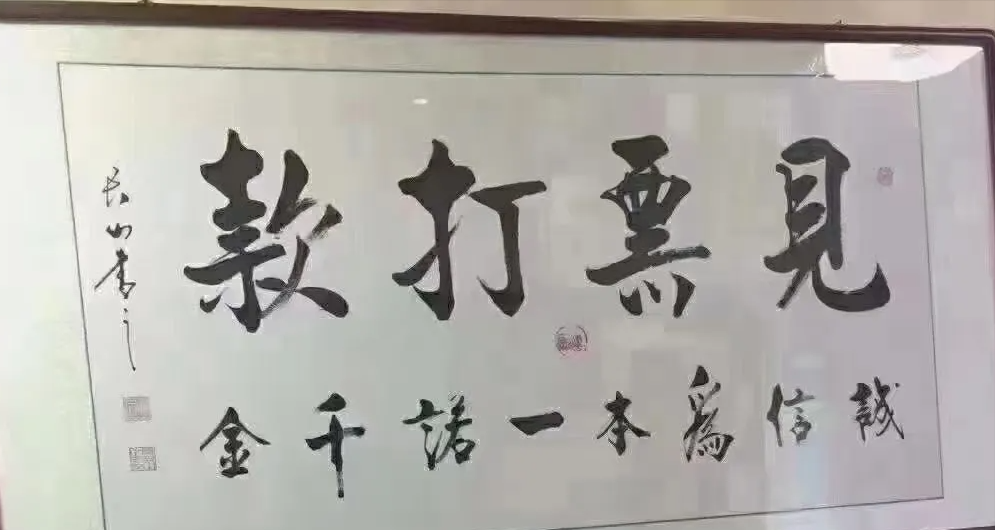 見票打款
誠信為本一諾千金
長山書之